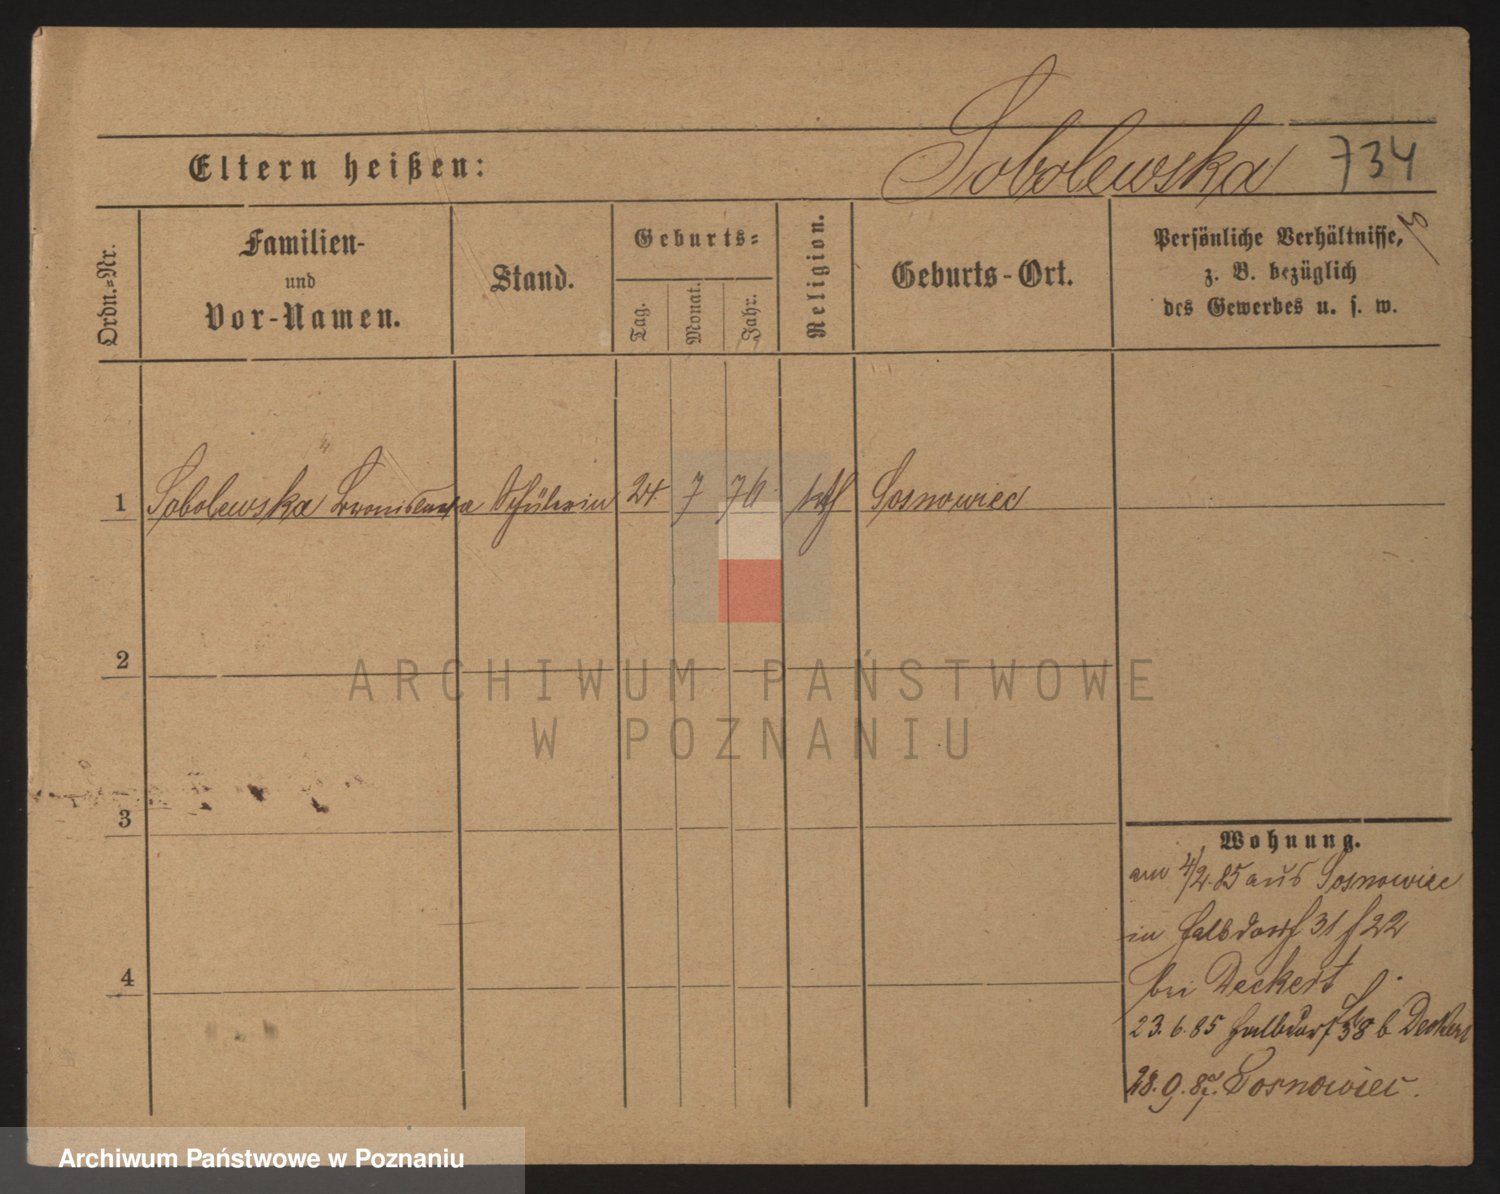 Sobolewska 734
Eltern heißen:
Ordn.=Nr.
Familien-
und
Vor-Namen.
Stand.
Geburts=
Tag.
Monat.
Jahr.
Religion.
Geburts-Ort.
Persönliche Verhältnisse,
z. B. bezüglich
des Gewerbes u. s. w.
1 Sobolewska Bronislawa Schülerin 24. 7 70 kth Sosnowiec
2
ARCHIWUM PAŃSTWOWE
W POZNANIU
3
4
Wohnung.
am 4/2.85 aus Sosnowiec
in Halbdorf 31 f 22
bei Deckert
23.6.85 Halbdorf 38 b Deckert
28.9.87. Sosnowiec.
Archiwum Państwowe w Poznaniu